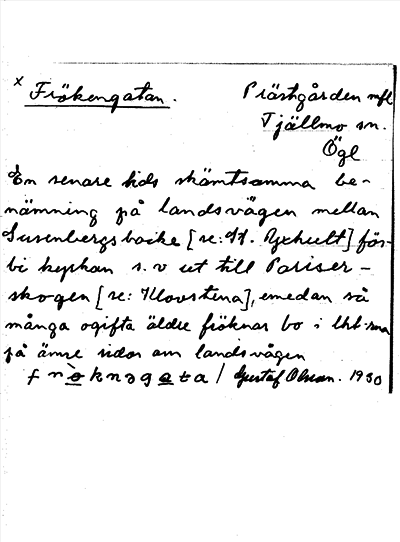 x Frökengatan. Prästgården mfl
Tjällmo sn.
Ögl
En senare tids skämtsamma be-
nämning på landsvägen mellan
Susenbergs backe [se: St. ] för-
bi kyrkan s.v ut till Pariser-
skogen [se: Klovstena], emedan så
många ogifta äldre fröknar bo i
på ömse sidor om landsvägen
frøknəgata / Gustaf Olsson. 1930